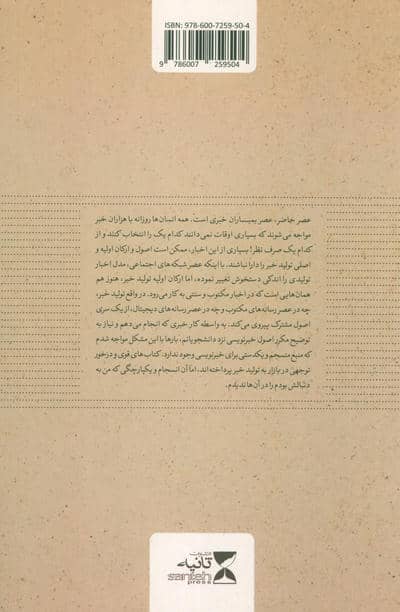 ISBN: 978-600-7259-50-4
9 786007 259504
عصر حاضر، عصر بمبـاران خبری است. همه انسان‌ها روزانه با هزاران خبر
مواجه می‌شوند که بسیاری اوقات نمی‌دانند کدام یک را انتخاب کنند و از
کدام یک صرف نظر! بسیاری از این اخبار، ممکن است اصول و ارکان اولیه و
اصلی تولید خبر را دارا نباشند. با اینکه عصر شبکه‌های اجتماعی، مدل اخبار
تولیدی را اندکی دستخوش تغییر نموده، اما ارکان اولیه تولید خبر، هنوز هم
همان‌هایی است که در اخبار مکتوب و سنتی به کار می‌رود. در واقع تولید خبر،
چه در عصر رسانه‌های مکتوب و چه در عصر رسانه‌های دیجیتال، از یک سری
اصول مشترک پیروی می‌کند. به واسطه کار خبری که انجام می‌دهم و نیاز به
توضیح مکرر اصول خبرنویسی نزد دانشجویانم، بارها با این مشکل مواجه شدم
که منبع منسجم و یکدستی برای خبرنویسی وجود ندارد. کتاب‌های قوی و درخور
توجهی در بازار به تولید خبر پرداخته‌اند. اما آن انسجام و یکپارچگی که من به
دنبالش بودم را در آن‌ها ندیدم.
انتشارات
ثانیه
saniteh
press